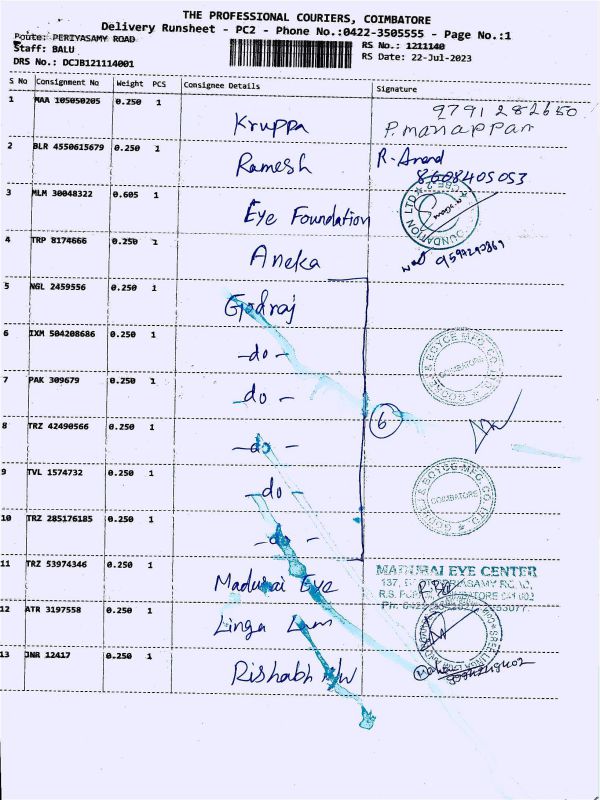 THE PROFESSIONAL COURIERS, COIMBATORE
Delivery Runsheet - PC2 - Phone No.:0422-3505555 - Page No.:1
Route: PERIYASAMY ROAD
Staff: BALU
DRS No.: DCJB121114001
RS No.: 1211140
RS Date: 22-Jul-2023
S No Consignment No Weight PCS Consignee Details Signature
1 MAA 105050205 0.250 1 Kruppa 9791282650
P.manappan
2 BLR 4550615679 0.250 1 Ramesh R. Anand
8608405053
3 MLM 30048322 0.605 1 Eye Foundation
4 TRP 8174666 0.250 1 Aneka
5 NGL 2459556 0.250 1 Godraj
6 IXM 504208686 0.250 1 -do-
7 PAK 309679 0.250 1 -do-
6
8 TRZ 42490566 0.250 1 -do-
9 TVL 1574732 0.250 1 -do-
COIMBATORE
10 TRZ 285176185 0.250 1 -do-
11 TRZ 53974346 0.250 1 Madurai Eye
MADURAI EYE CENTER
12 ATR 3197558 0.250 1 Linga
13 JNR 12417 0.250 1 Rishabh